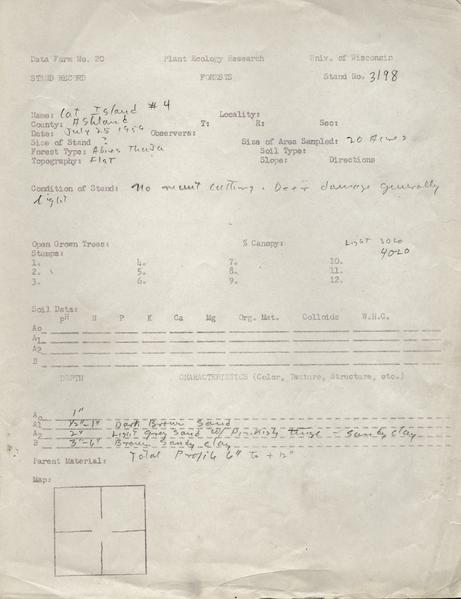 Data Form No. 20 Plant Ecology Research Univ. of Wisconsin
STAND RECORD FORESTS Stand No. 3198
Name: Cat Island #4 Locality:
County: Ashland T: R: Sec:
Date: July 25 1956 Observers:
Size of Stand ? Size of Area Sampled: 20 Acres
Forest Type: Abies Thuja Soil Type:
Topography: Flat Slope: Directions
Condition of Stand: No recent cutting. Deer damage generally
light
Open Grown Trees: % Canopy: Light 3020
Stumps: 4020
1. 4. 7. 10.
2. 5. 8. 11.
3. 6. 9. 12.
Soil Data:
pH N P K Ca Mg Org. Mat. Colloids W.H.C.
Ao
A1
A2
B
DEPTH CHARACTERISTICS (Color, Texture, Structure, etc.)
Ao 1"
A1 ½"-1" Dark Brown Sand
A2 2" Light gray sand w/ Pinkish sandy clay
B 3"-6" Brown Sandy clay
Total Profile 6" to +12"
Parent Material:
Map: